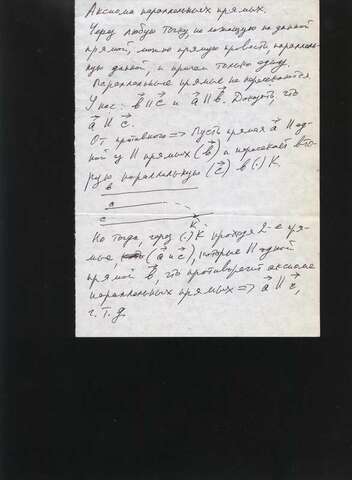 Аксиома параллельных прямых.
Через любую точку, не лежащую на данной
прямой, можно прямую провести, параллель-
ную данной, и притом только одну.
Параллельные прямые не пересекаются.
У нас: b⃗ || c⃗ и a⃗ || b⃗. Доказать, что
a⃗ || c⃗.
От противного => Пусть прямая a⃗ || од-
ной из || прямых (b⃗) и пересекает вто-
рую параллельную (c⃗) в (·) K.
в
a
c
K
Но тогда, через (·) K проходя 2-е пря-
мые (a⃗ и c⃗), которые || одной
прямой b⃗, что противоречит аксиоме
параллельных прямых => a⃗ || c⃗,
ч. т. д.